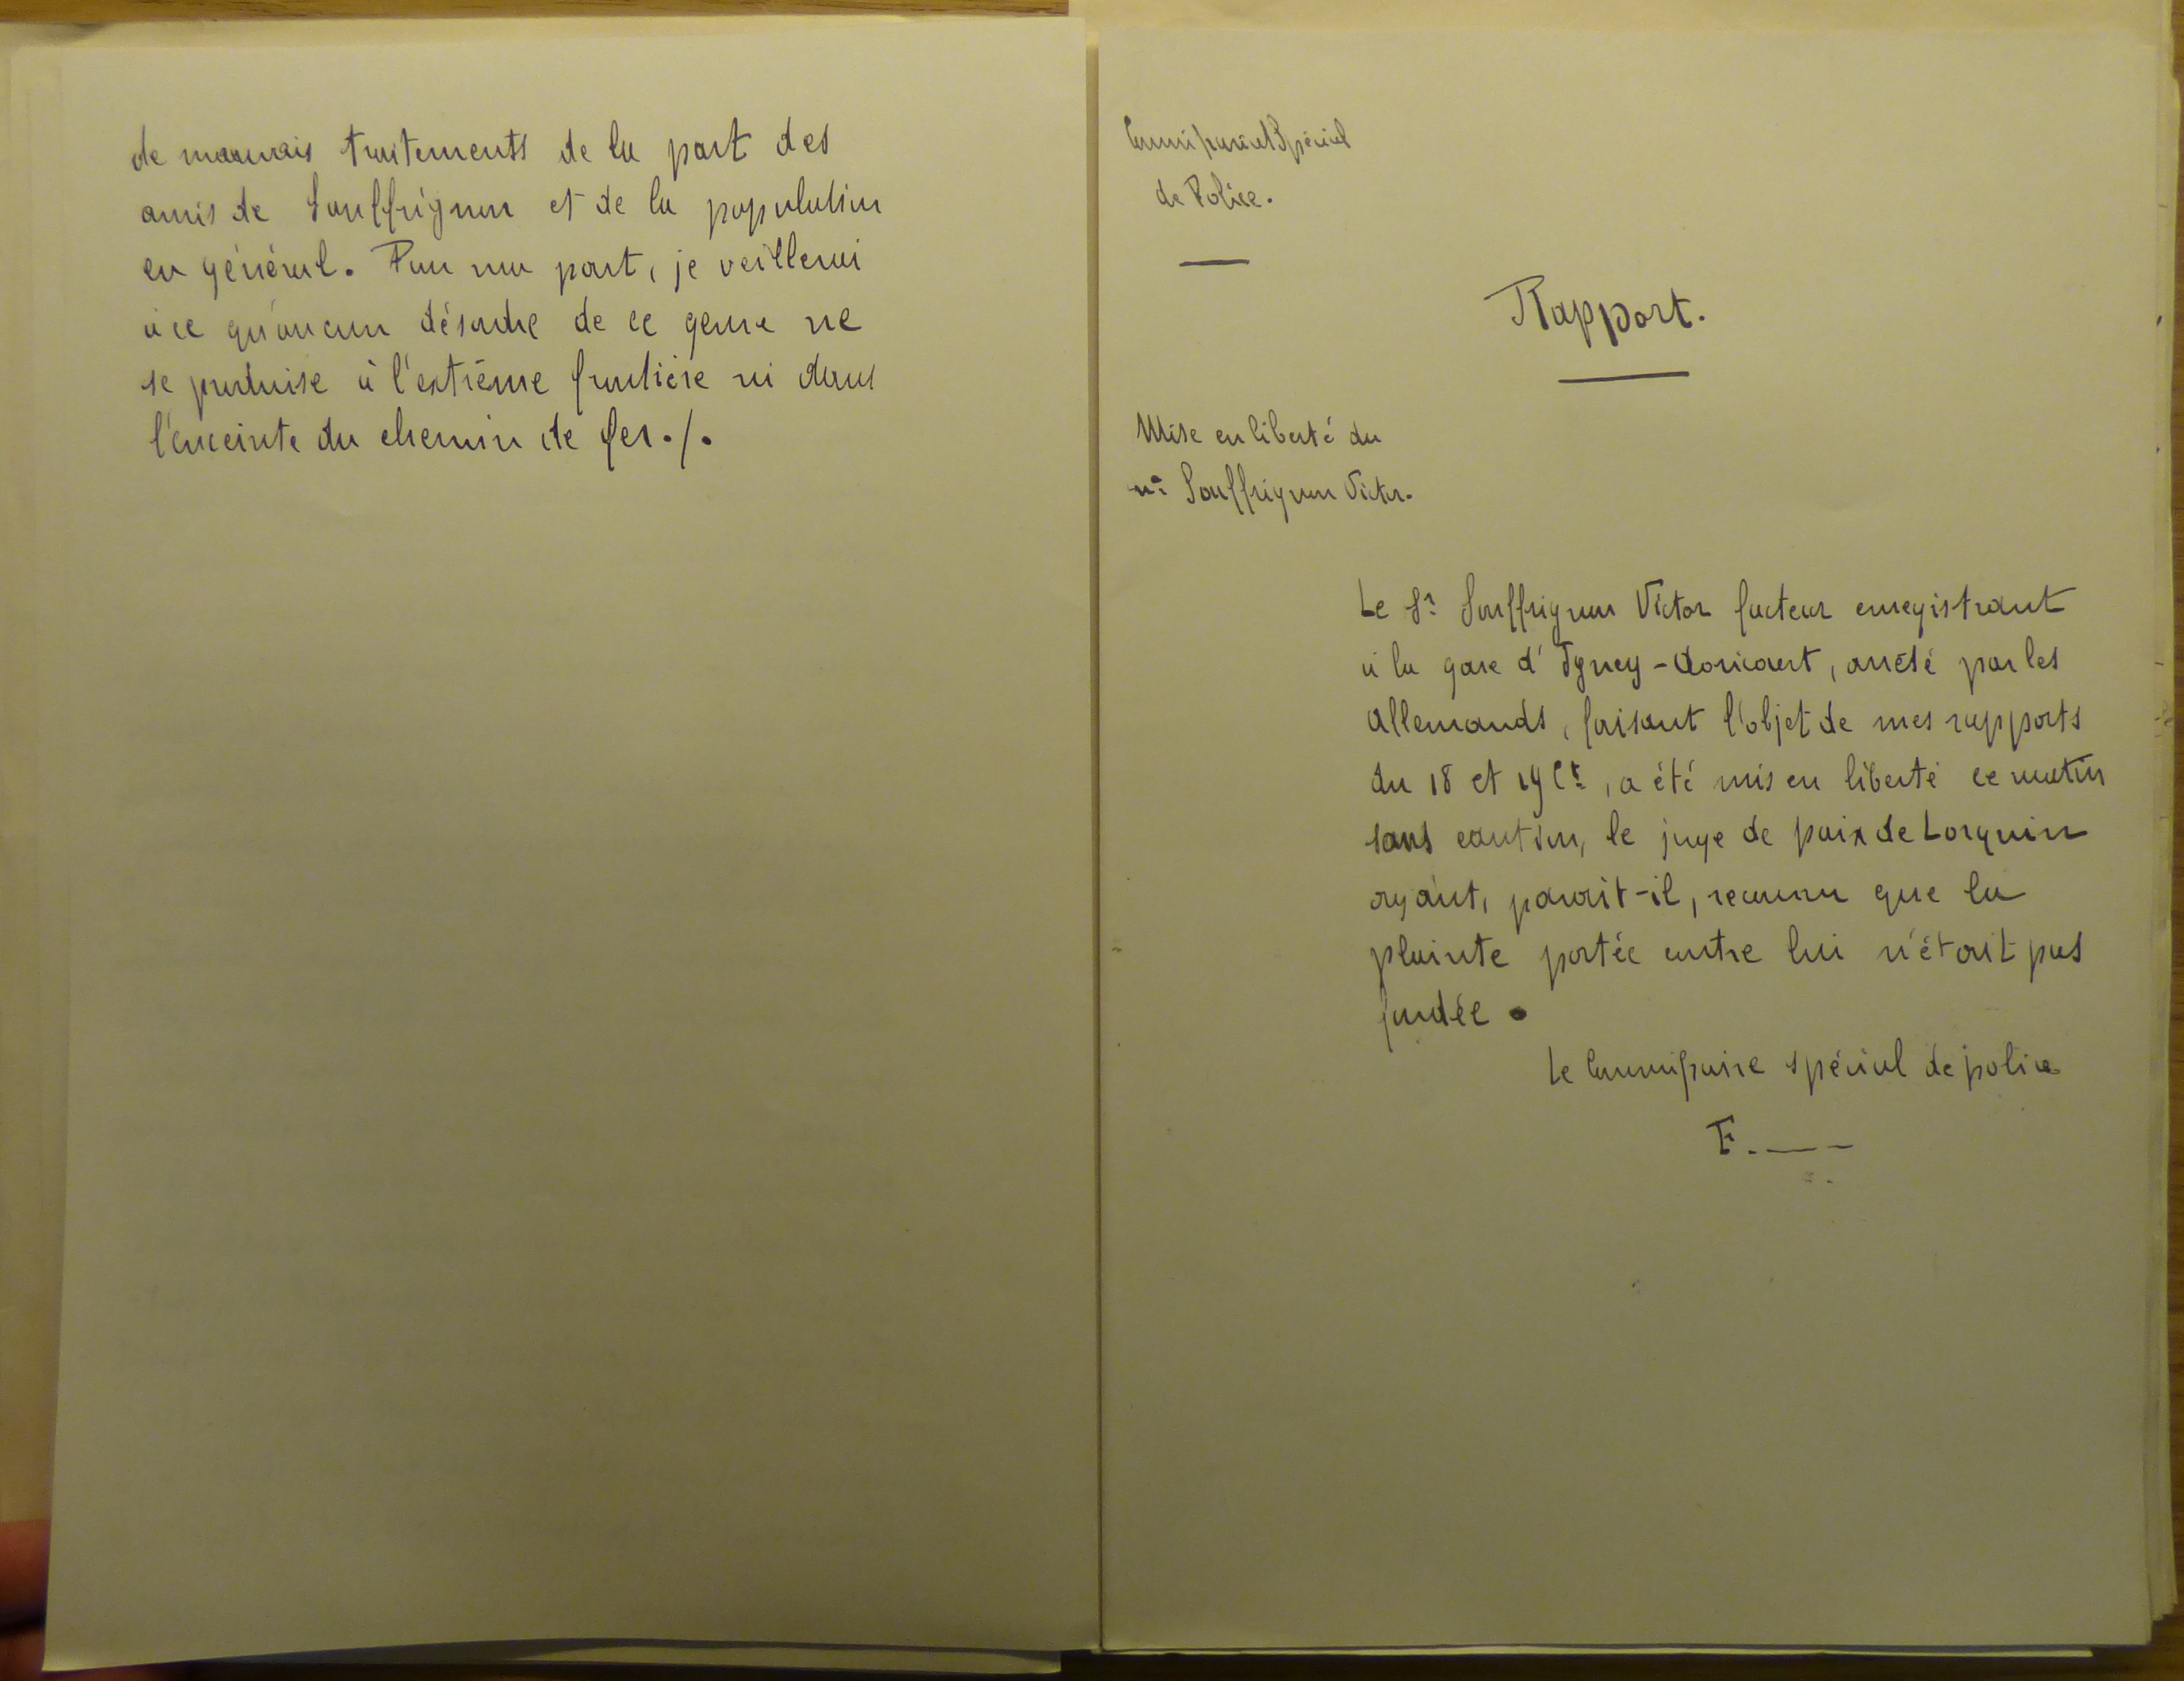 de mauvais traitements de la part des
amis de Souffrignon et de la population
en général. Pour ma part, je veillerai
à ce qu'aucun désordre de ce genre ne
se produise à l'extrême frontière ni dans
l'enceinte du chemin de fer./.
Commissariat Spécial
de Police.
Rapport.
Mise en liberté du
né Souffrignon Victor.
Le Sr Souffrignon Victor facteur enregistrant
à la gare d'Igney-Avricourt, arrêté par les
Allemands, faisant l'objet de mes rapports
du 18 et 19 Ct, a été mis en liberté ce matin
sans caution, le juge de paix de Lorquin
ayant, parait-il, reconnu que la
plainte portée contre lui n'était pas
fondée.
Le Commissaire spécial de police
F.